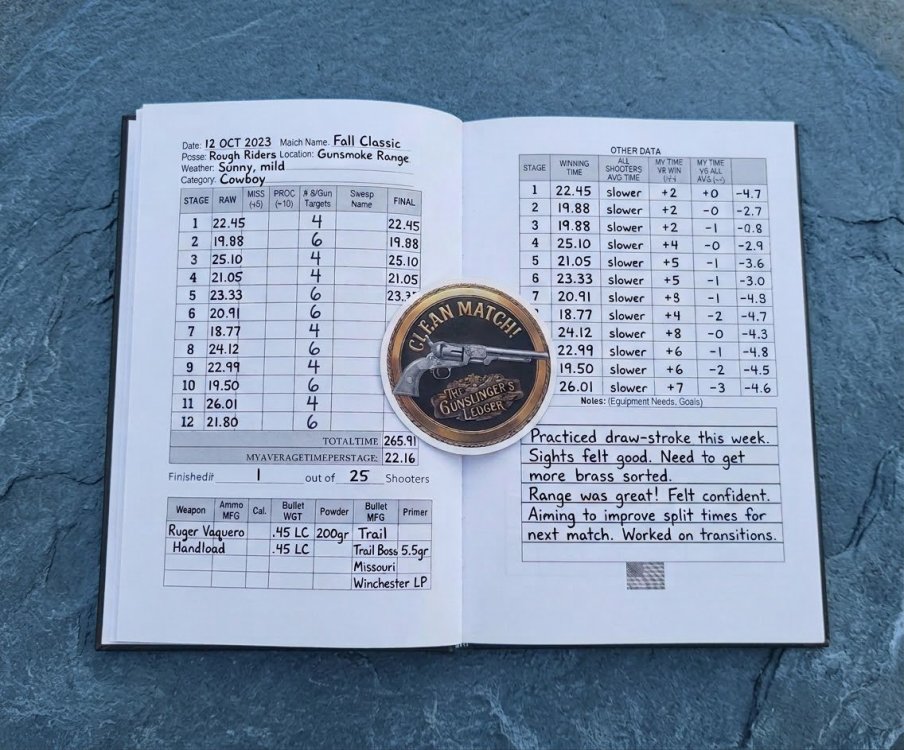 Date: 12 OCT 2023 Maich Name. Fall Classic
Posse: Rough Riders Location: Gunsmoke Range
Weather: Sunny, mild
Category: Cowboy
STAGE RAW MISS (+5) PROC (-10) # &/Gun Targets Swesp Name FINAL
1 22.45 4 22.45
2 19.88 6 19.88
3 25.10 4 25.10
4 21.05 4 21.05
5 23.33 6 23.3
6 20.91 6
7 18.77 4
8 24.12 6
9 22.99 4
10 19.50 6
11 26.01 4
12 21.80 6
TOTALTIME 265.91
MYAVERAGETIMEPERSTAGE: 22.16
Finishedit 1 out of 25 Shooters
Weapon Ammo MFG Cal. Bullet WGT Powder Bullet MFG Primer
Ruger Vaquero .45 LC 200gr Trail
Handload .45 LC Trail Boss 5.5gr
Missouri
Winchester LP
CLEAN MATCH!
THE
GUNSLINGER'S
LEDGER
OTHER DATA
STAGE WINNING TIME ALL SHOOTERS AVG TIME MY TIME VR WIN MY TIME VS ALL
1 22.45 slower +2 +0 -4.7
2 19.88 slower +2 -0 -2.7
3 19.88 slower +2 -1 -0.8
4 25.10 slower +4 -0 -2.9
5 21.05 slower +5 -1 -3.6
6 23.33 slower +5 -1 -3.0
7 20.91 slower +8 -1 -4.9
18.77 slower +4 -2 -4.7
24.12 slower +8 -0 -4.3
22.99 slower +6 -1 -4.8
19.50 slower +6 -2 -4.5
26.01 slower +7 -3 -4.6
Notes: (Equipment Needs. Goals)
Practiced draw-stroke this week.
Sights felt good. Need to get
more brass sorted.
Range was great! Felt confident.
Aiming to improve split times for
next match. Worked on transitions.